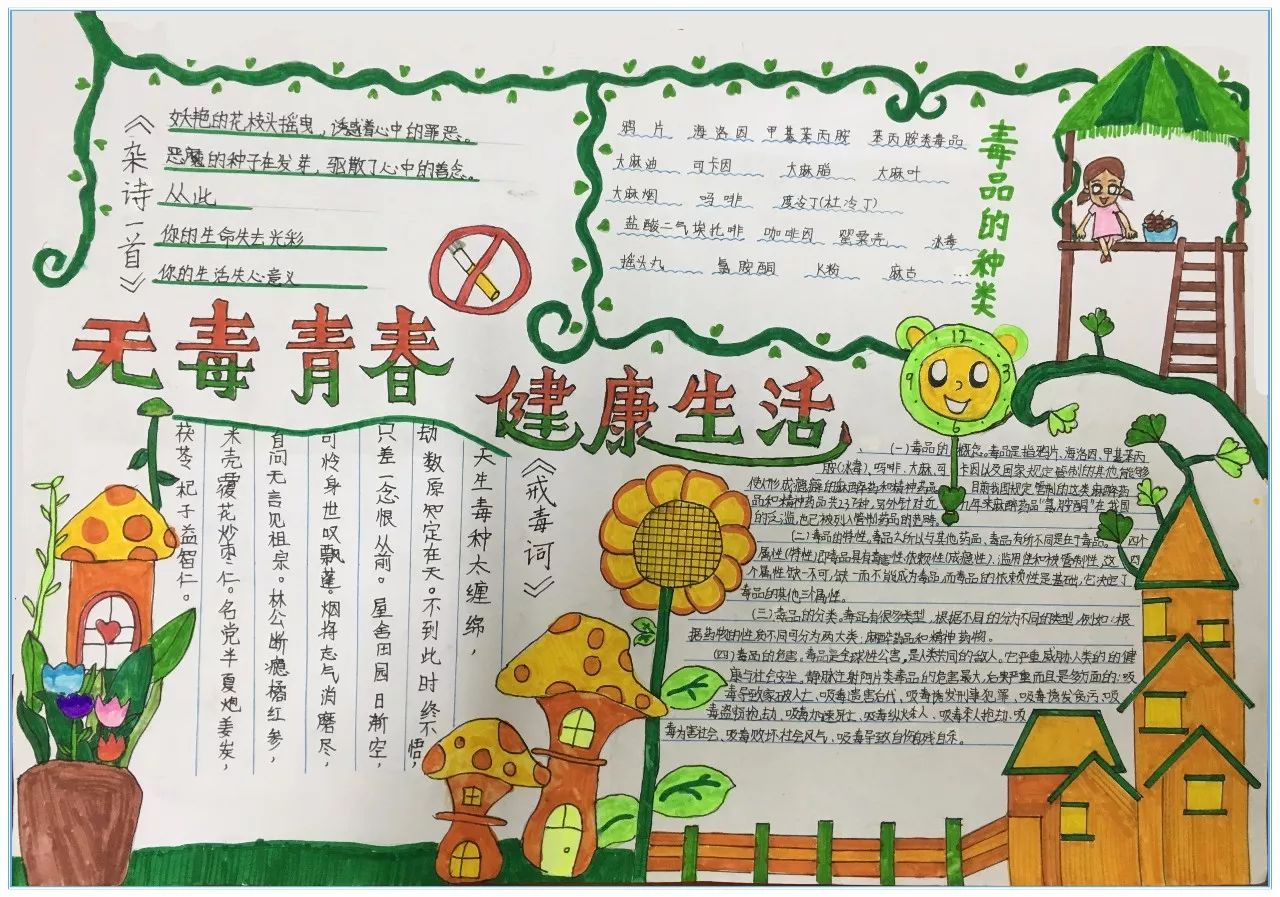 《杂诗一首》
妖艳的花枝头摇曳，诱惑着心中的罪恶。
恶魔的种子在发芽，驱散了心中的善念。
从此
你的生命失去光彩
你的生活失心意义
毒品的种类
鸦片 海洛因 甲基苯丙胺 苯丙胺类毒品
大麻油 可卡因 大麻脂 大麻叶
大麻烟 吗啡 度冷丁(杜冷丁)
盐酸二气埃托啡 咖啡因 罂粟壳 冰毒
摇头丸 氯胺酮 K粉 麻古 ...
无毒青春
健康生活
12
3
6
9
《戒毒词》
天生毒种太缠绵，
劫数原知定在天。不到此时终不悟，
只差一念恨从前。屋舍田园日渐空，
可怜身世叹飘蓬。烟将志气消磨尽，
自问无言见祖宗。林公断瘾橘红参，
米壳覆花炒枣仁。名党半夏炮姜炭，
茯苓杞子益智仁。
(一)毒品的概念。毒品是指鸦片、海洛因、甲基苯丙
胺(冰毒)、吗啡、大麻、可卡因以及国家规定管制的其他能够
使人形成瘾癖的麻醉药和精神药品。目前我国规定管制的这类麻醉药
品和精神药品共237种,另外针对近几年来麻醉药品"氯胺酮"在我国
的泛滥,也已被列入管制药品的范畴。
(二)毒品的特性。毒品之所以与其他药品、毒品有所不同是在于毒品。四个
属性(特性)即毒品具有毒害性、依赖性(成瘾性)、滥用性和被管制性,这四
个属性缺一不可,缺一而不能成为毒品,而毒品的依赖性是基础,它决定了
毒品的其他三个属性。
(三)毒品的分类。毒品有很多类型,根据不同的分为不同的类型,例如:根
据药物的性质不同可分为两大类:麻醉药品和精神药物。
(四)毒品的危害。毒品是全球性公害,是人类共同的敌人。它严重威胁人类的的健
康与社会安全,静脉注射阿片类毒品的危害最大,后果严重而且是多方面的:吸
毒导致家破人亡、吸毒遗害后代、吸毒诱发刑事犯罪、吸毒诱发贪污、吸
毒盗窃抢劫、吸毒加速死亡、吸毒纵火杀人、吸毒杀人抢劫、吸
毒为害社会、吸毒败坏社会风气、吸毒导致自伤自残自杀。